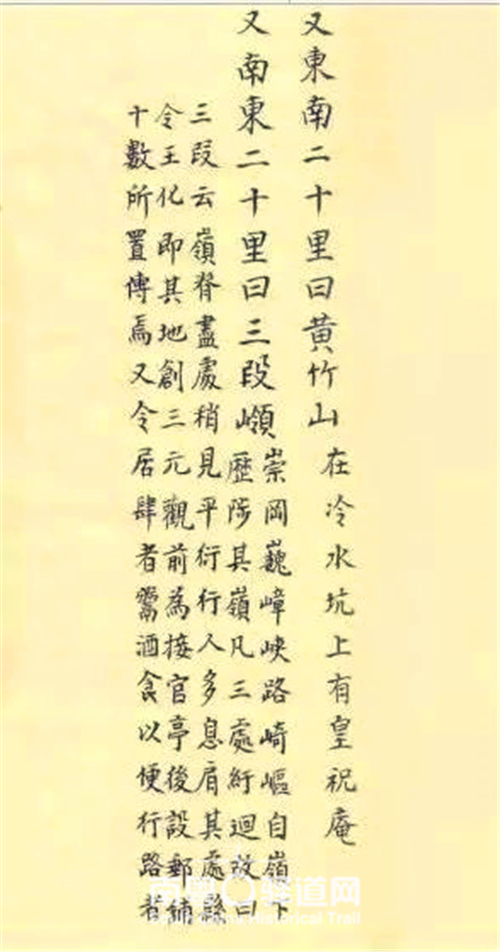 又東南二十里曰黄竹山 在冷水坑上有皇祝庵
又南東二十里曰三段嶺 崇岡巍嶂峽路崎嶇自嶺下
歷陟其嶺凡三處紆迴故曰
三段云嶺脊盡處稍見平衍行人多息肩其處縣
令王化即其地創三元觀前為接官亭後設郵鋪
十數所置傳焉又令居肆者鬻酒食以便行路者
南粤 驿道网
Historical Trail